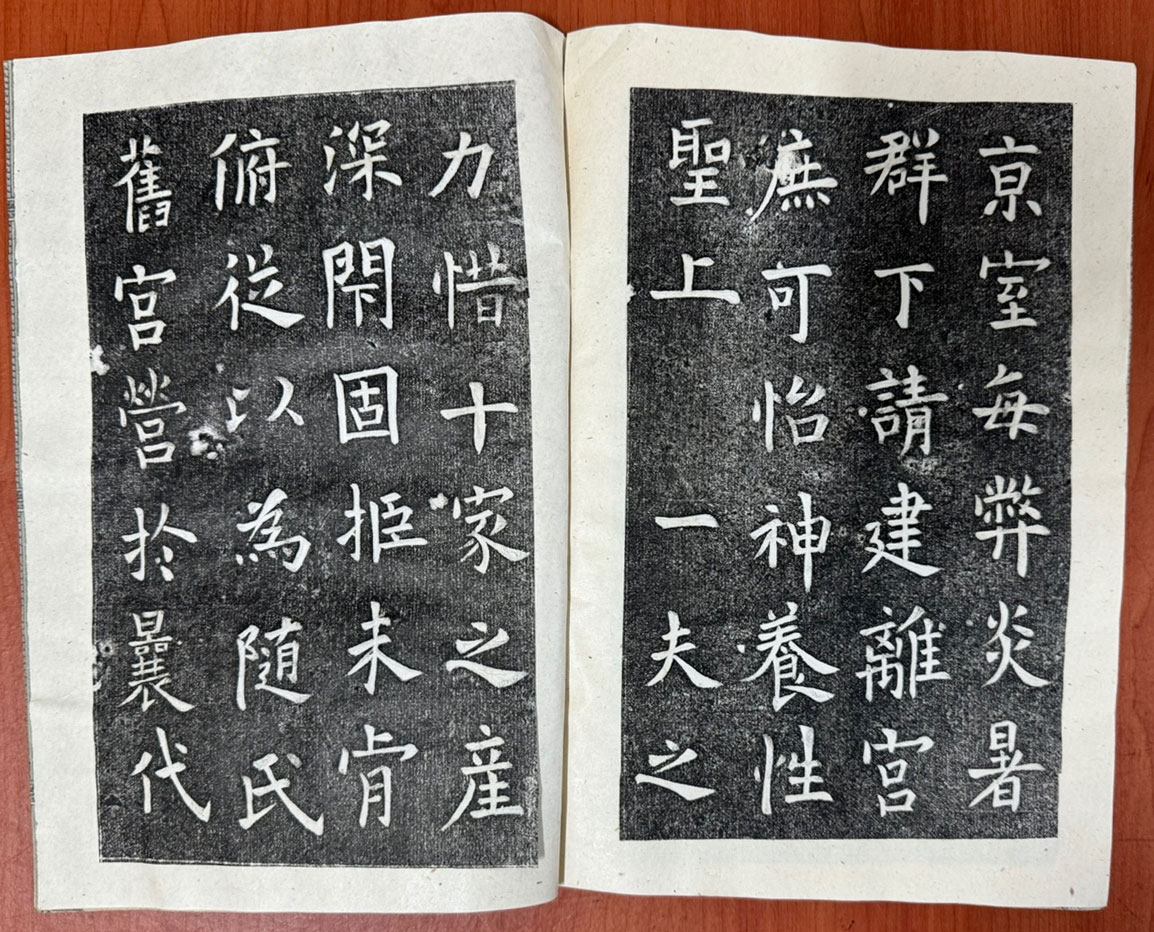 京室每弊炎暑
群下請建離宮
庶可怡神養性
聖上 一夫之
力惜十家之產
深閇固拒未肯
俯從以為隨氏
舊宮營於曩代